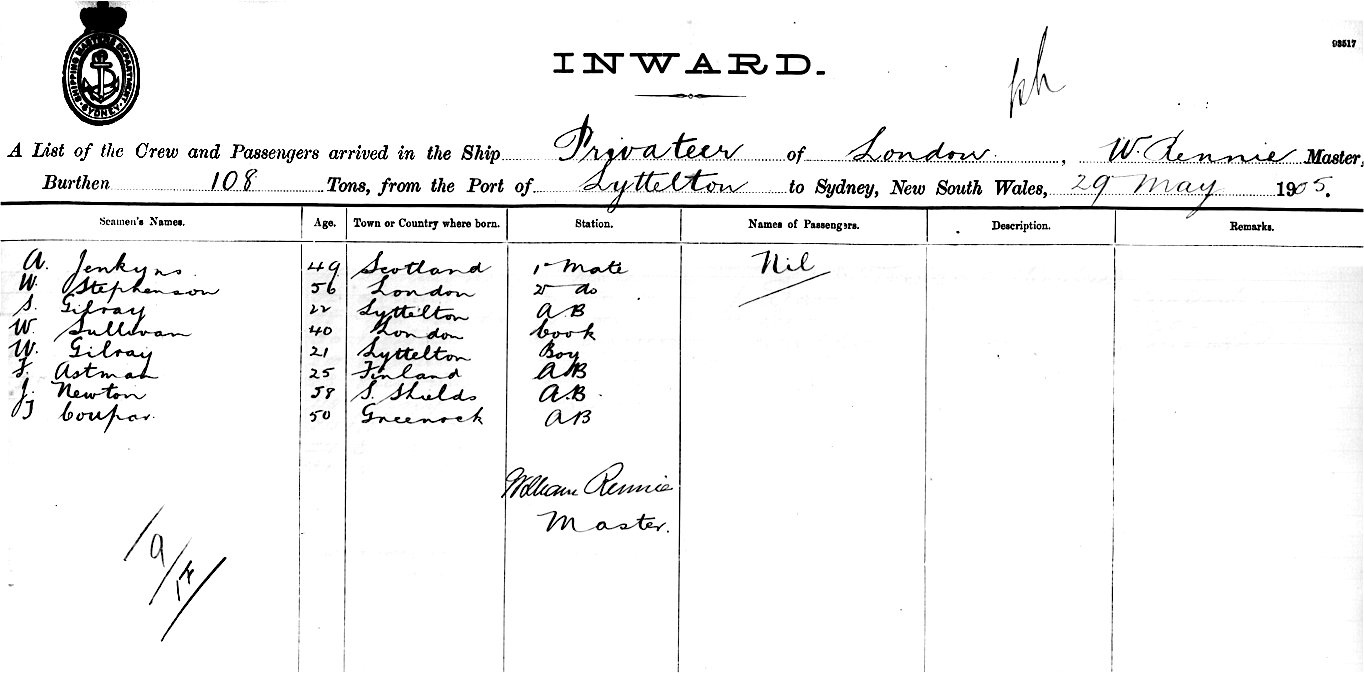 SHIPPING MASTERS DEPARTMENT SYDNEY
93517
INWARD.
A List of the Crew and Passengers arrived in the Ship Privateer of London, W. Rennie Master,
Burthen 108 Tons, from the Port of Lyttelton to Sydney, New South Wales, 29 May 1905.
Seamen's Names. Age. Town or Country where born. Station. Names of Passengers. Description. Remarks.
A. Jenkyns. 49 Scotland 1st Mate Nil
W. Stephenson 56 London 2d do
S. Gilray 22 Lyttelton AB
W. Sullivan 40 London Cook
W. Gilray 21 Lyttelton Boy
F. Astman 25 Finland AB
J. Newton 58 S. Shields A.B.
J Coupar. 50 Greenock AB
William Rennie
Master.